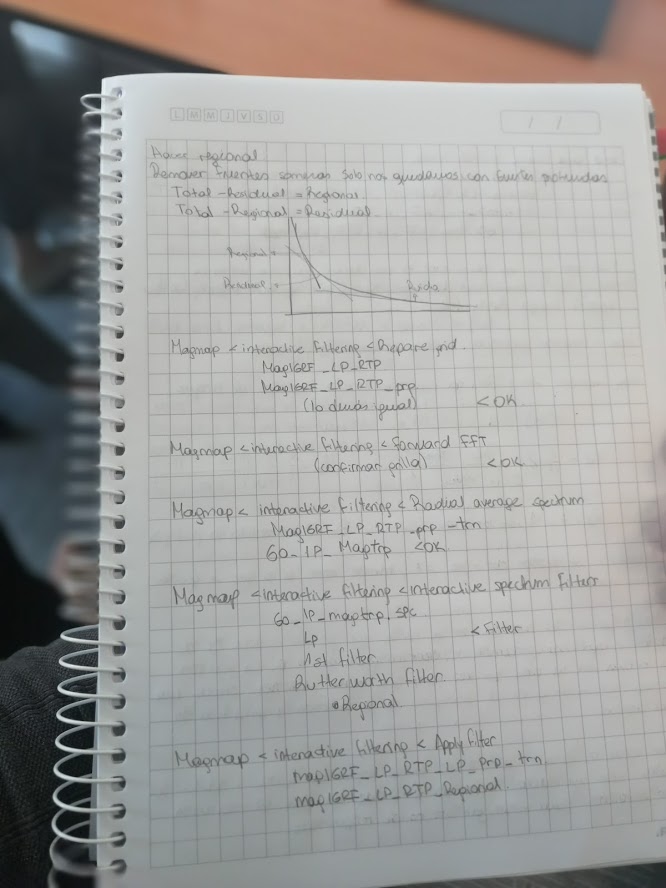 L M M J V S D
/ /
Hacer regional
Remover fuentes someras solo nos quedamos con fuentes profundas
Total - Residual = Regional
Total - Regional = Residual
Regional
Residual
Ruido
Magmap < interactive filtering < Prepare grid
MagIGRF_LP_RTP
MagIGRF_LP_RTP_prp
(lo demas igual) < OK
Magmap < interactive filtering < Forward FFT
(confirmar grilla) < OK
Magmap < interactive filtering < Radial average spectrum
MagIGRF_LP_RTP_prp_trn
60_LP_Magtrp < OK
Magmap < interactive filtering < interactive spectrum filters
60_LP_magtrp.spc
LP < Filter
1st filter
Butterworth filter
• Regional
Magmap < interactive filtering < Apply filter
magIGRF_LP_RTP_LP_prp_trn
magIGRF_LP_RTP_Regional